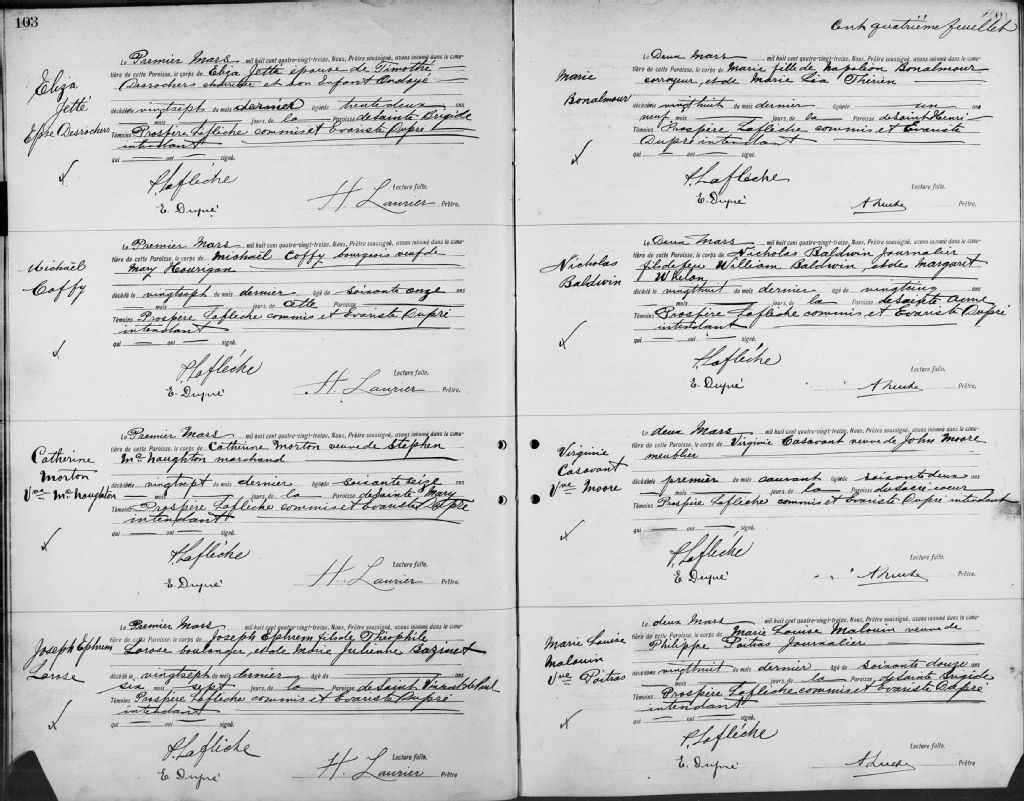 103
Eliza
Jetté
Epse Desrochers
Le Premier Mars mil huit cent quatre-vingt-treize, Nous, Prêtre soussigné, avons inhumé dans le cime-
tière de cette Paroisse, le corps de Eliza Jetté épouse de Timothée
Desrochers et son Enfant Ondoyé
décédée le vingtsept du mois dernier âgée de trente deux ans
mois jours, de la Paroisse de Sainte Brigide
Témoins Prospère Laflèche commis et Evariste Dupré
intendant
qui — ont — signé.
P. Laflèche
Lecture faite.
E. Dupré
H. Laurier Prêtre.
Michaël
Coffy
Le Premier Mars mil huit cent quatre-vingt-treize, Nous, Prêtre soussigné, avons inhumé dans le cime-
tière de cette Paroisse, le corps de Michaël Coffy bourgeois veuf de
Mary Hourigan
décédé le vingtsept du mois dernier âgé de soixante onze ans
mois jours, de cette Paroisse
Témoins Prospère Laflèche commis et Evariste Dupré
intendant
qui — ont — signé.
P. Laflèche
Lecture faite.
E. Dupré
H. Laurier Prêtre.
Catherine
Morton
Vve McNaughton
Le Premier Mars mil huit cent quatre-vingt-treize, Nous, Prêtre soussigné, avons inhumé dans le cime-
tière de cette Paroisse, le corps de Catherine Morton veuve de Stephen
McNaughton marchand
décédée le vingtsept du mois dernier âgée de soixante seize ans
mois jours, de la Paroisse de Sainte Mary
Témoins Prospère Laflèche commis et Evariste Dupré
intendant
qui — ont — signé.
P. Laflèche
Lecture faite.
E. Dupré
H. Laurier Prêtre.
Joseph Ephrem
Larose
Le Premier Mars mil huit cent quatre-vingt-treize, Nous, Prêtre soussigné, avons inhumé dans le cime-
tière de cette Paroisse, le corps de Joseph Ephrem fils de Théophile
Larose boulanger, et de Marie Julienne Bazinet
décédé le vingtsept du mois dernier âgé de ans
six mois sept jours, de la Paroisse de Saint Vincent de Paul
Témoins Prospère Laflèche commis et Evariste Dupré
intendant
qui — ont — signé.
P. Laflèche
Lecture faite.
E. Dupré
H. Laurier Prêtre
Cent quatrième feuillet
Marie
Bonalmour
Le Deux Mars mil huit cent quatre-vingt-treize, Nous, Prêtre soussigné, avons inhumé dans le cime-
tière de cette Paroisse, le corps de Marie fille de Napoléon Bonalmour
corroyeur, et de Marie Léa Thérien
décédée le vingthuit du mois dernier âgée de un an
neuf mois jours, de la Paroisse de Saint Henri
Témoins Prospère Laflèche commis et Evariste
Dupré intendant
qui — ont — signé.
P. Laflèche
Lecture faite.
E. Dupré
Prêtre.
Nicholas
Baldwin
Le Deux Mars mil huit cent quatre-vingt-treize, Nous, Prêtre soussigné, avons inhumé dans le cime-
tière de cette Paroisse, le corps de Nicholas Baldwin Journalier
fils de feu William Baldwin, et de Margaret
décédé le vingthuit du mois dernier âgé de vingtcinq ans
mois jours, de la Paroisse de Sainte Anne
Témoins Prospère Laflèche commis et Evariste Dupré
intendant
qui — ont — signé.
P. Laflèche
Lecture faite.
E. Dupré
Prêtre.
Virginie
Casavant
Vve Moore
Le deux Mars mil huit cent quatre-vingt-treize, Nous, Prêtre soussigné, avons inhumé dans le cime-
tière de cette Paroisse, le corps de Virginie Casavant veuve de John Moore
meublier
décédée le premier du mois courant âgée de soixante deux ans
mois jours, de la Paroisse du Sacré-coeur
Témoins Prospère Laflèche commis et Evariste Dupré intendant
qui — ont — signé.
P. Laflèche
Lecture faite.
E. Dupré
Prêtre.
Marie Louise
Malouin
Vve Poitras
Le deux Mars mil huit cent quatre-vingt-treize, Nous, Prêtre soussigné, avons inhumé dans le cime-
tière de cette Paroisse, le corps de Marie Louise Malouin veuve de
Philippe Poitras Journalier
décédée le vingthuit du mois dernier âgée de soixante douze ans
mois jours, de la Paroisse de Sainte Brigide
Témoins Prospère Laflèche commis et Evariste Dupré
intendant
qui — ont — signé.
P. Laflèche
Lecture faite.
E. Dupré
Prêtre